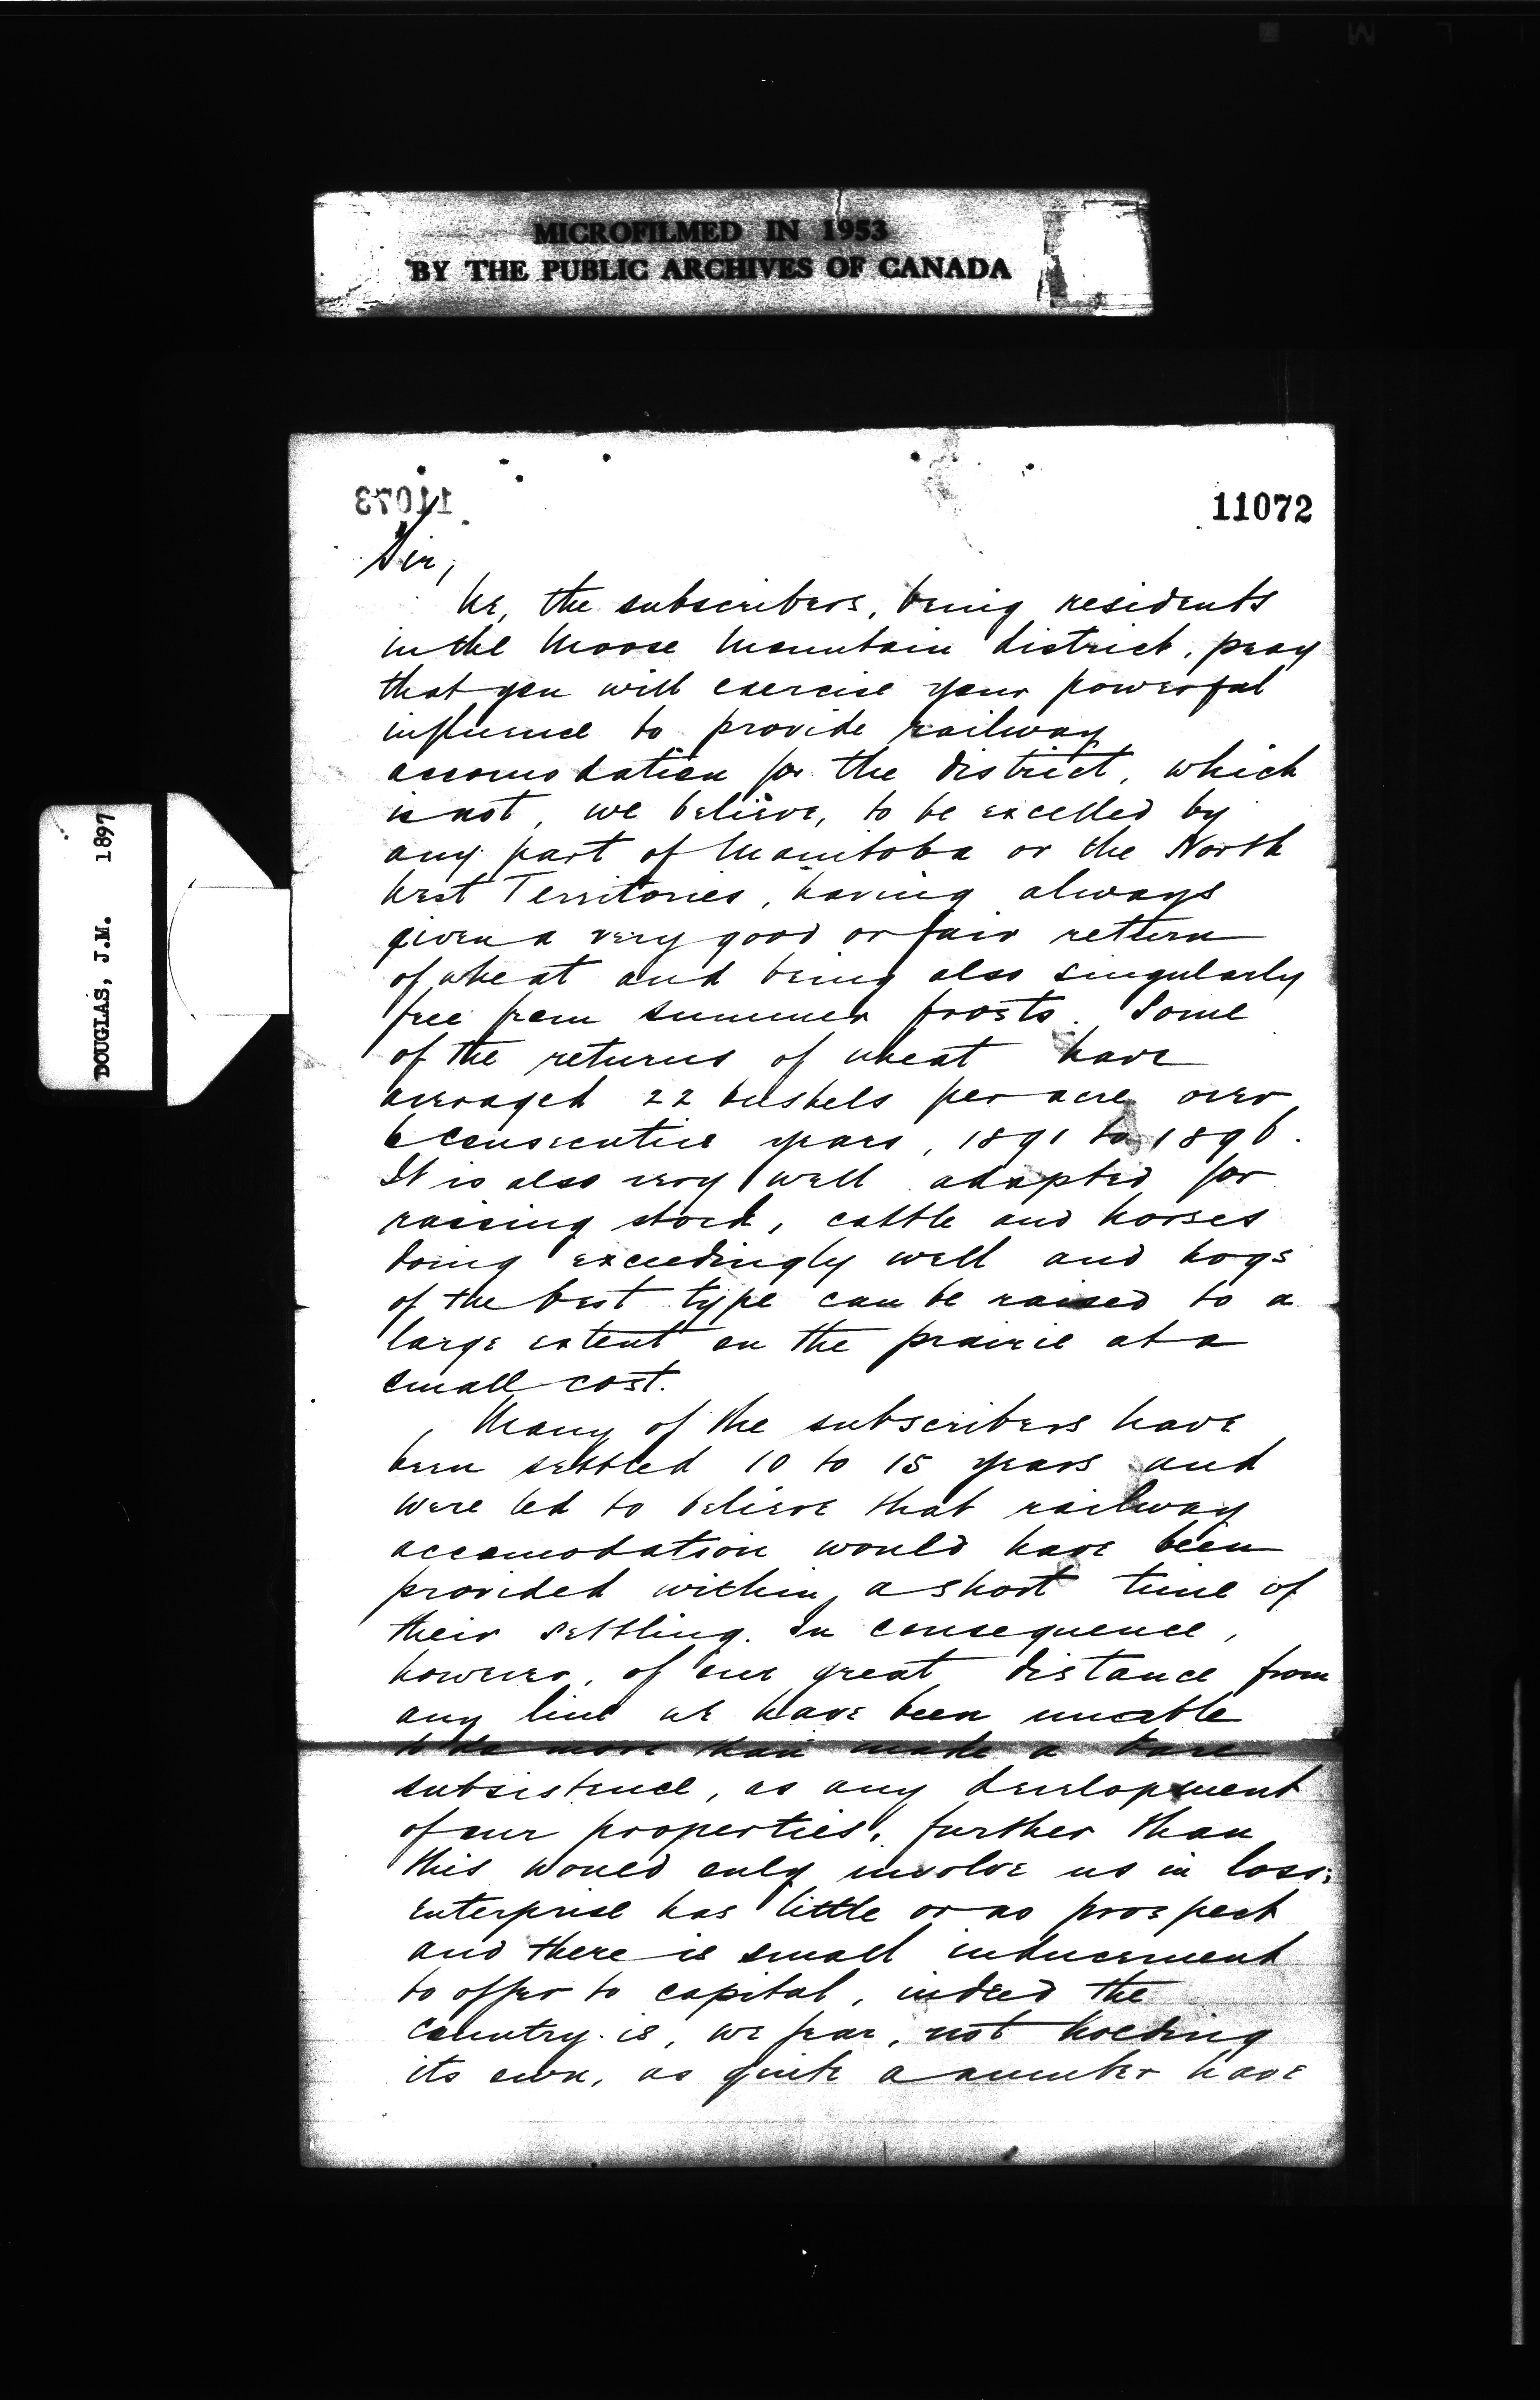 MICROFILMED IN 1953
BY THE PUBLIC ARCHIVES OF CANADA
DOUGLAS, J.M. 1897
11073
11072
Sir,
We, the subscribers, being residents
in the Moose Mountain district, pray
that you will exercise your powerful
influence to provide railway
accomodation for the district, which
is not, we believe, to be excelled by
any part of Manitoba or the North
West Territories, having always
given a very good or fair return
of wheat and being also singularly
free from summer frosts. Some
of the returns of wheat have
averaged 22 bushels per acre over
6 consecutive years, 1891 to 1896.
It is also very well adapted for
raising stock, cattle and horses
doing exceedingly well and hogs
of the best type can be raised to a
large extent on the prairie at a
small cost.
Many of the subscribers have
been settled 10 to 15 years and
were led to believe that railway
accomodation would have been
provided within a short time of
their settling. In consequence,
however, of our great distance from
any line we have been unable
to do more than make a bare
subsistence, as any development
of our properties, further than
this would only involve us in loss;
enterprise has little or no prospect
and there is small inducement
to offer to capital, indeed the
country is, we fear, not holding
its own, as quite a number have